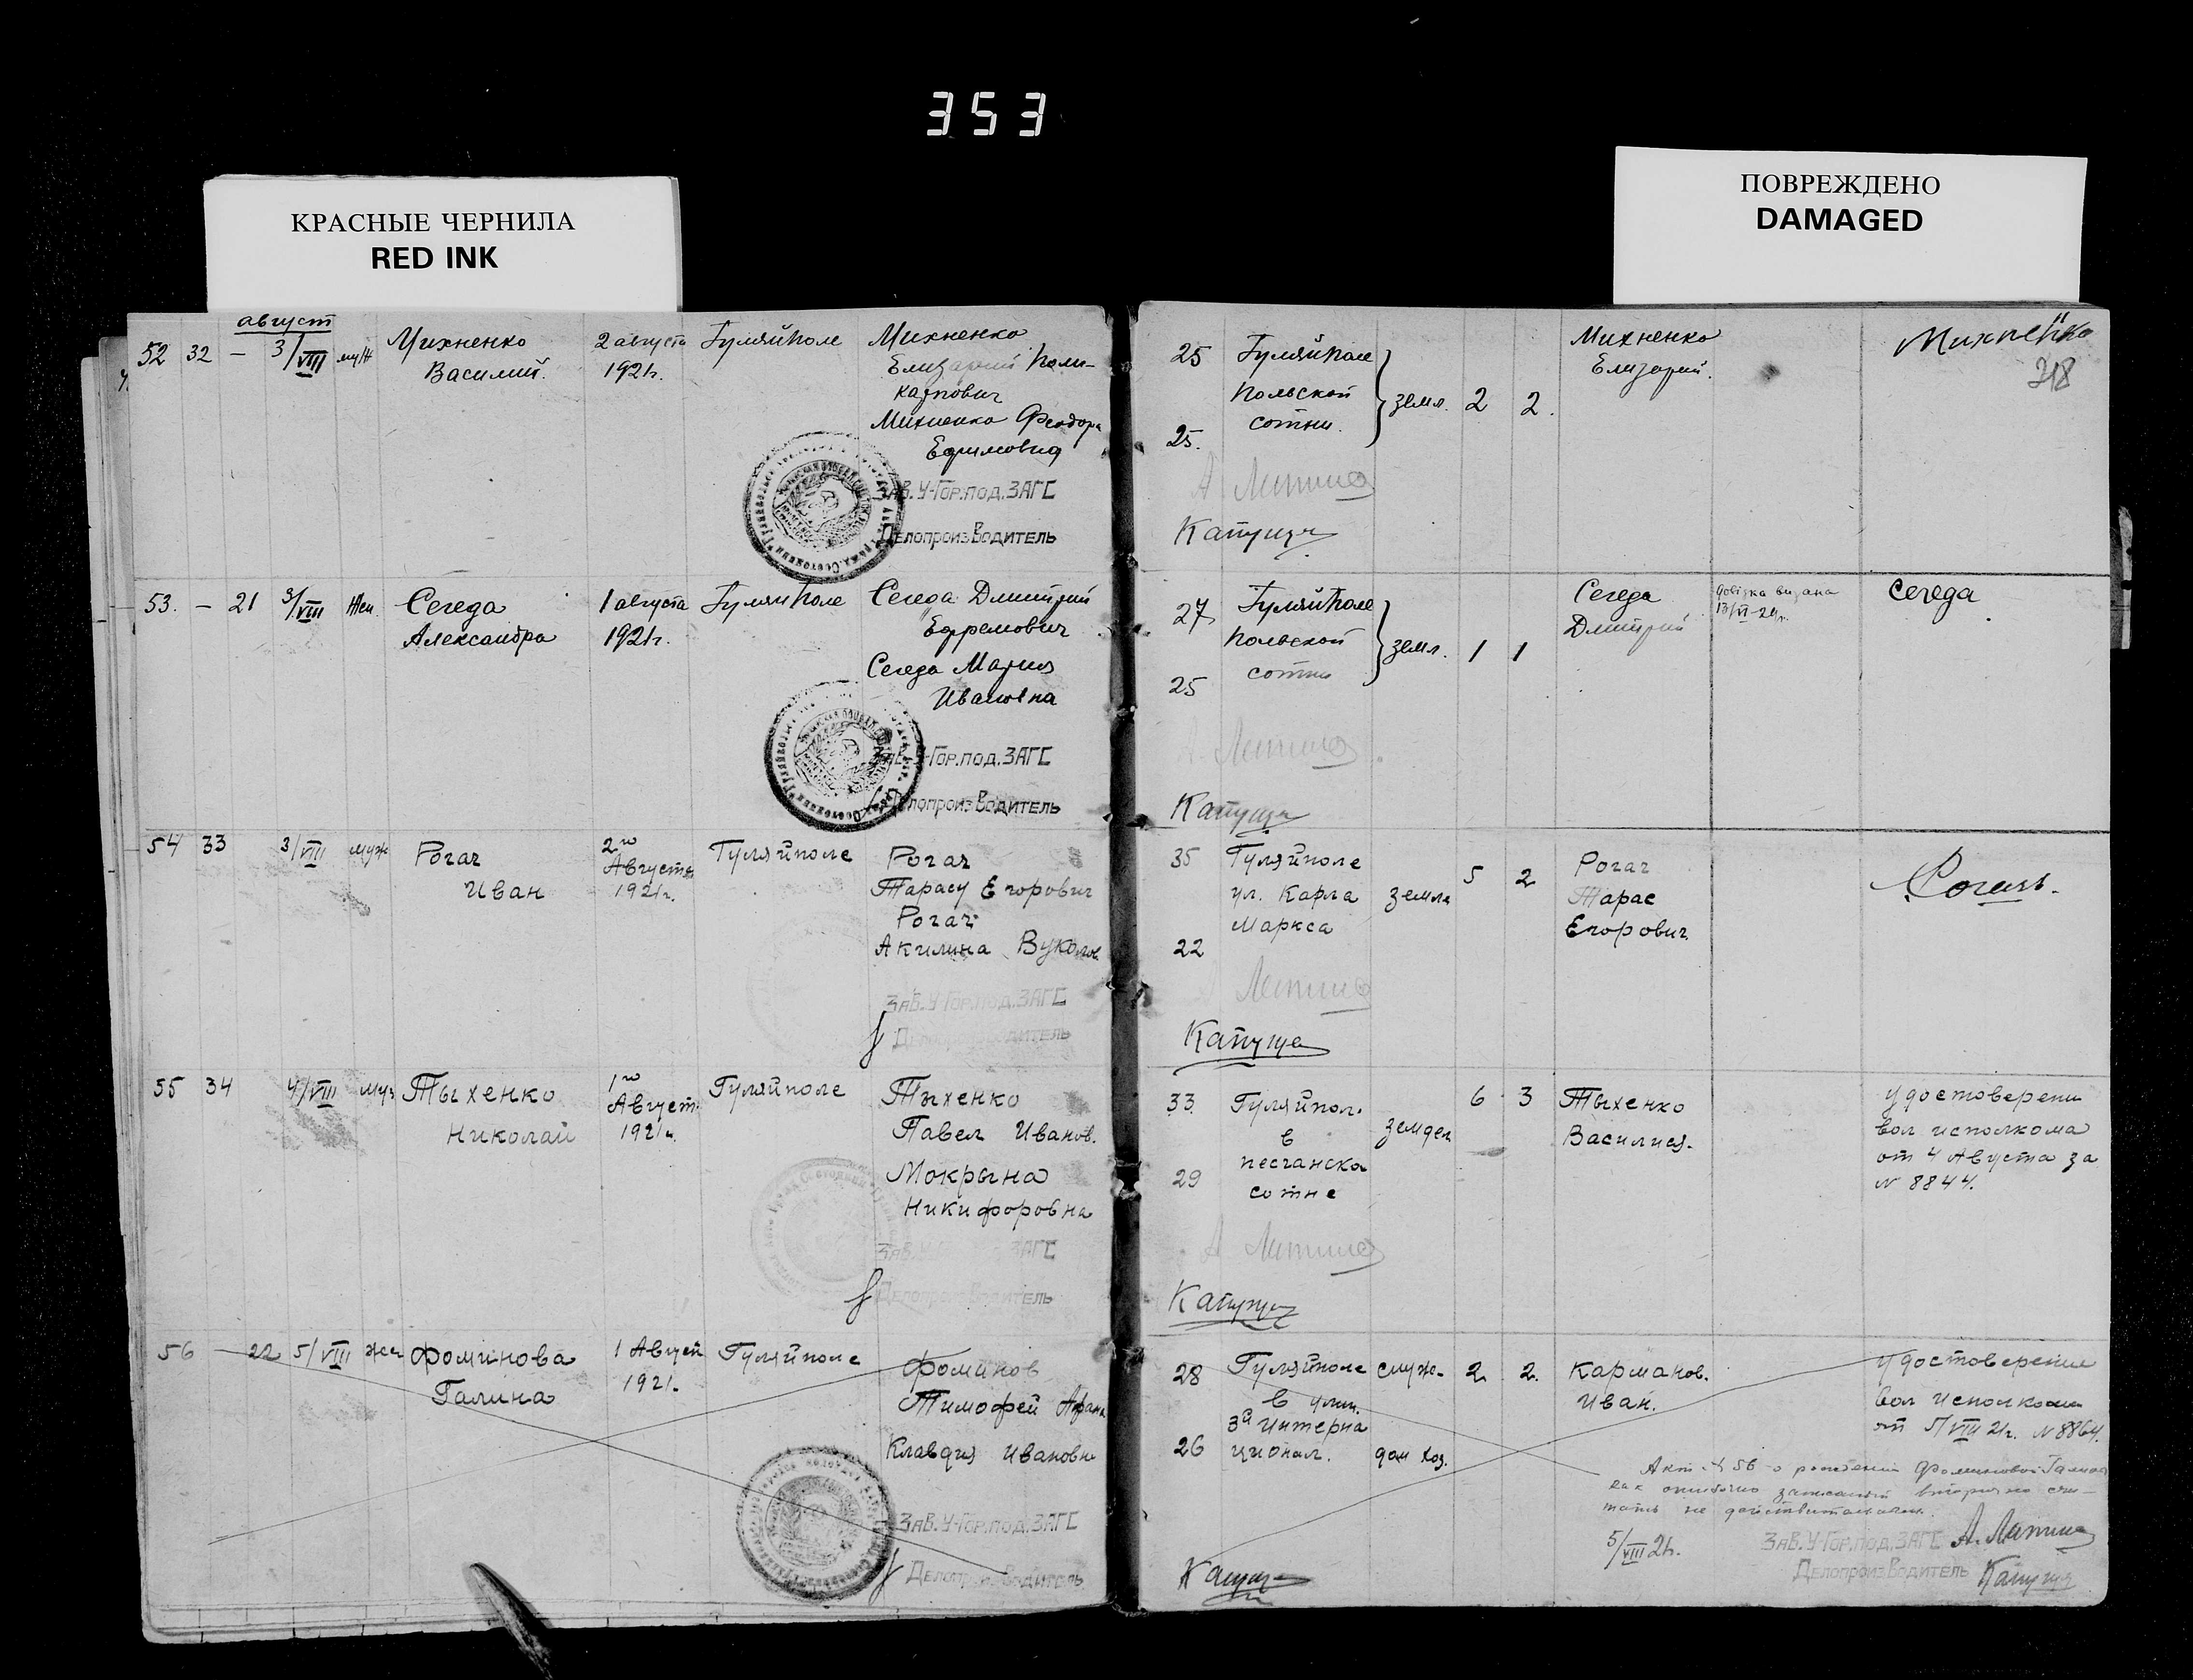 353
КРАСНЫЕ ЧЕРНИЛА
RED INK
ПОВРЕЖДЕНО
DAMAGED
август
52 32 – 3/VIII муж
Михненко
Василий.
2 августа
1921г.
Гуляйполе
Михненко
Елизарий Поли-
карпович
Михненко Феодора
Ефимовна
Зав. У-Гор.под. ЗАГС
ДелопроизВодитель
25
25.
Гуляйполе
Польской
сотни.
земл. 2 2.
Михненко
Елизарий.
Михненко
318
А. Литвин
Капуща
53. – 21 3/VIII Жен.
Сегеда
Александра
1 августа
1921г.
Гуляйполе
Сегеда Дмитрий
Ефремович
Сегеда Мария
Ивановна
Зав. У-Гор.под. ЗАГС
ДелопроизВодитель
27
25
Гуляйполе
польской
сотни
земл. 1 1
Сегеда
Дмитрий
Сегеда
Капуща
54 33 3/VIII муж
Рогач
Иван
2го
Августа
1921г.
Гуляйполе
Рогач
Тарасу Егорович
Рогач
Акилина Вуколов.
Зав. У-Гор.под. ЗАГС
ДелопроизВодитель
35
22
Гуляйполе
ул. Карла
Маркса
земле 5 2
Рогач
Тарас
Егорович
Рогачь.
Капуща
55 34 4/VIII муз
Тыхенко
Николай
1го
Август.
1921г.
Гуляйполе
Тыхенко
Павел Иванов.
Мокрына
Никифоровна
Зав. У-Гор.под. ЗАГС
ДелопроизВодитель
33
29
Гуляйпол.
в
песчанска
сотне
земдел 6 3
Тыхенко
Василися.
удостоверени
вол исполкома
от 4 Августа за
№ 8844.
Капуща
56 – 22 5/VIII жен
Фоминова
Галина
1 Август
1921.
Гуляйполе
Фоминов
Тимофей Афана
Клавдия Ивановн
Зав. У-Гор.под. ЗАГС
ДелопроизВодитель
28
26
Гуляйполе
в улиц.
3а Интерна
ционал.
служ.
дом хоз.
2. 2.
Карманов.
Иван.
удостоверение
вол исполкома
от 5/VIII 21г. № 8864.
Акт № 56 о рождении Фоминовой Галины
как ошибочно записанный вторично счи-
тать не действительным.
5/VIII 21г.
Зав. У-Гор.под. ЗАГС А. Литвин
ДелопроизВодитель Капуща
Капуща